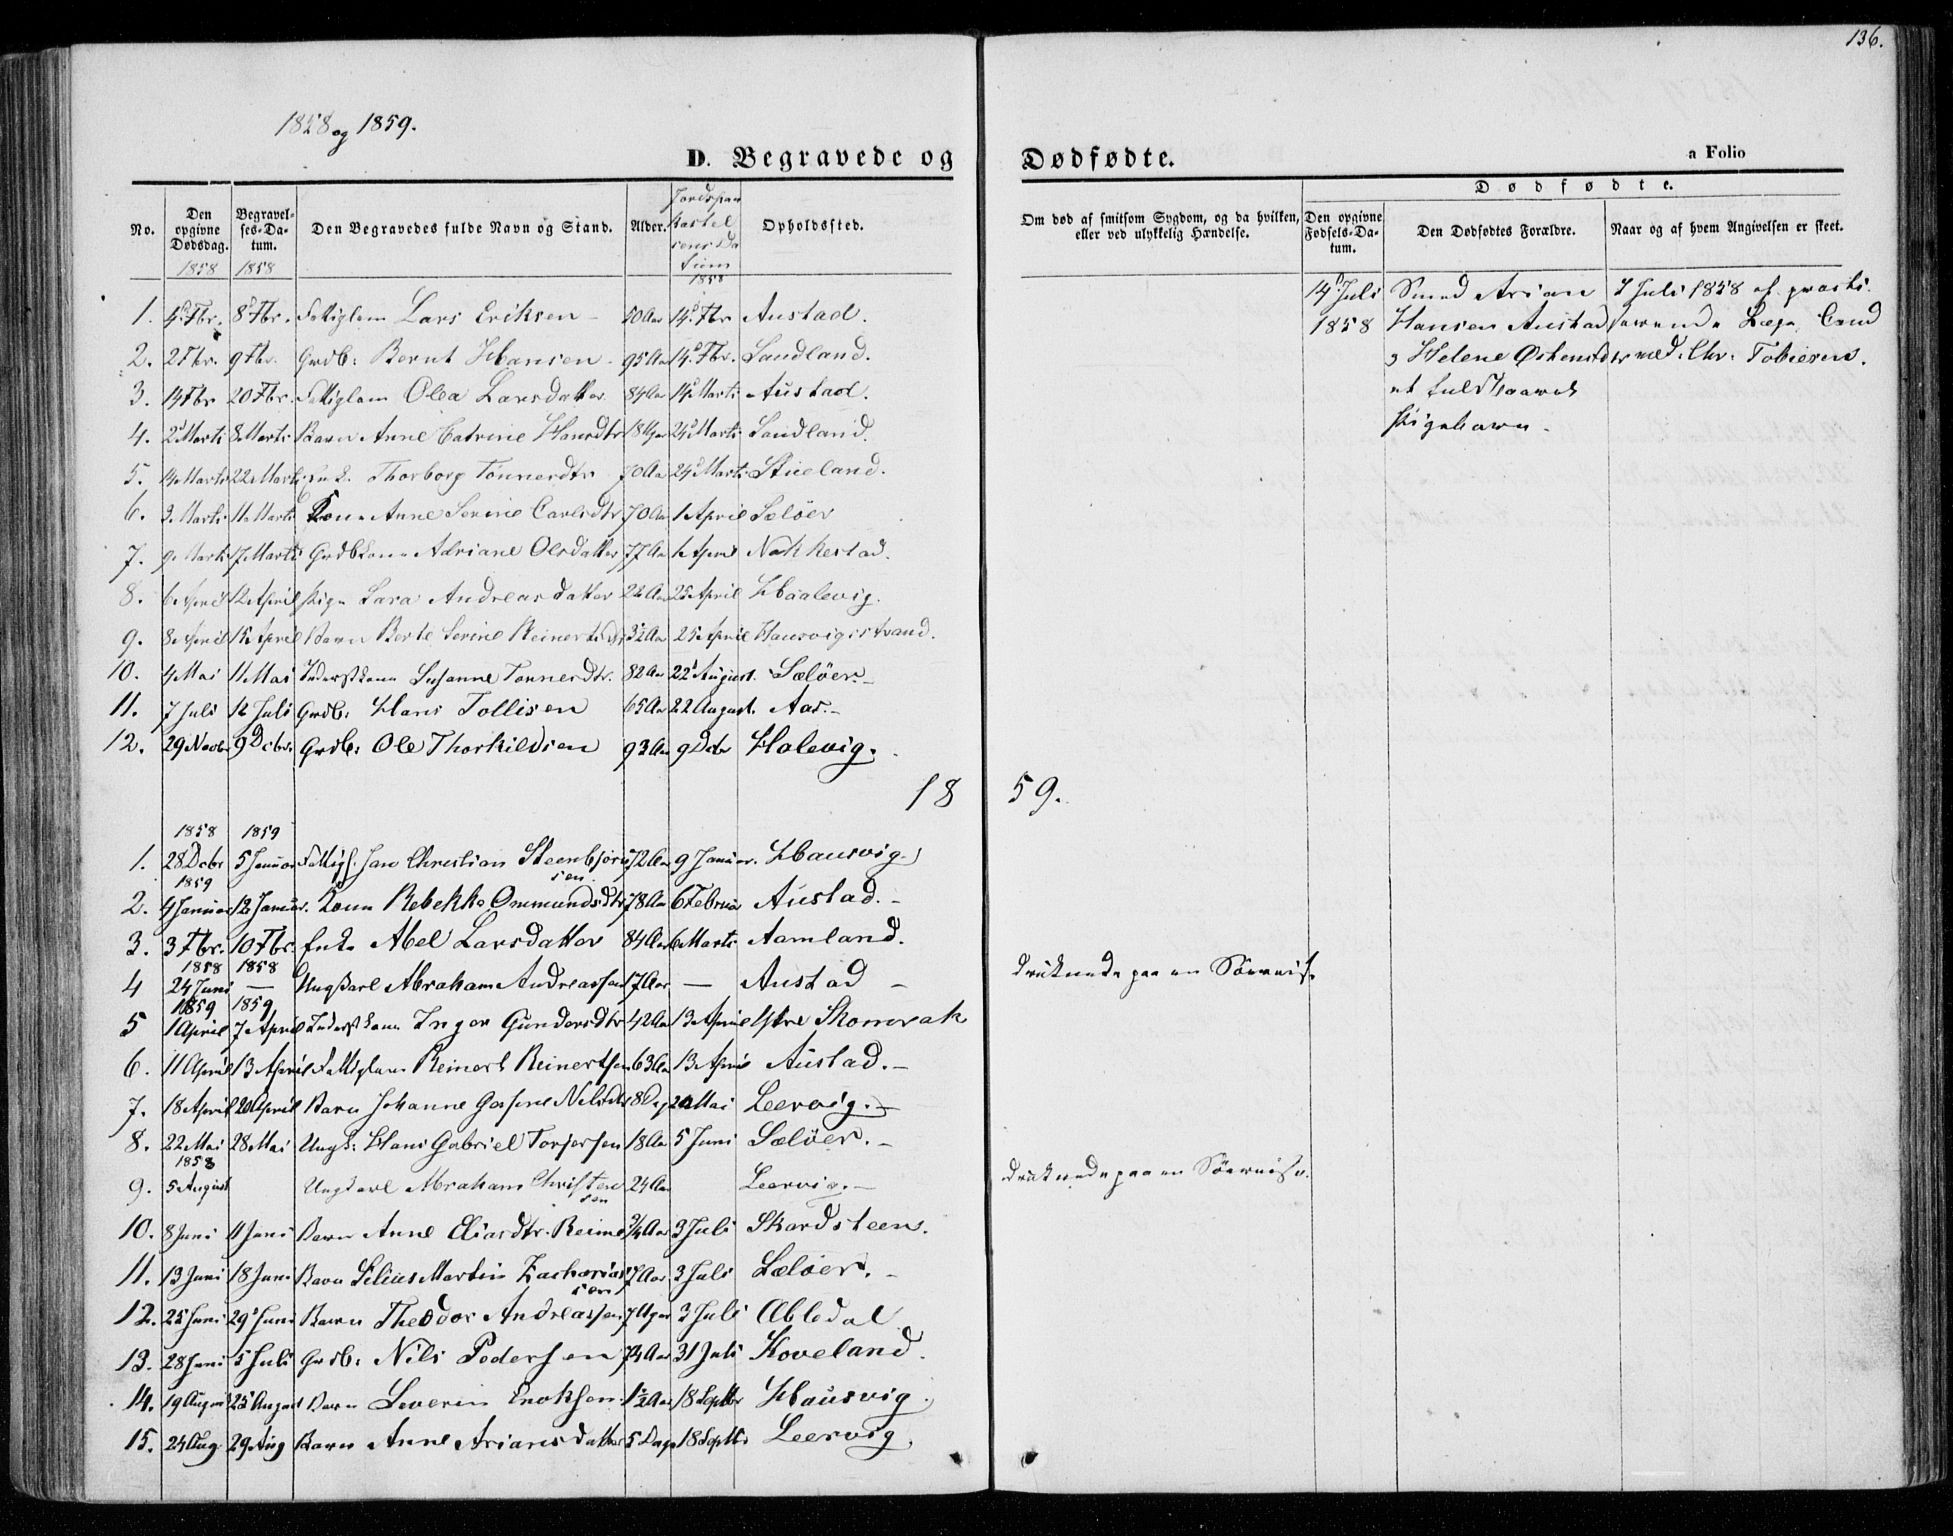 136.
1858 og 1859.
D. Begravede og Dødfødte.
a Folio
No.
Den opgivne Dødsdag.
Begravelses-Datum.
Den Begravedes fulde Navn og Stand.
Alder.
Jordspaakastelsens Datum
Opholdssted.
Om død af smitsom Sygdom, og da hvilken, eller ved ulykkelig Hændelse.
Dødfødte.
Den opgivne Fødsels-Datum.
Den Dødfødtes Forældre.
Naar og af hvem Angivelsen er skeet.
1858 1858 1858
1. 4 Fbr. 8 Fbr. Fattiglem Lars Eriksen 50 Aar 14 Fbr Austad.
2. 2 Fbr. 9 Fbr. Grdb: Bernt Hansen 95 Aar 14 Fbr. Sandland.
3. 14 Fbr 20 Fbr. Fattiglem Olea Larsdatter 84 Aar 14 Marts Austad.
4. 2 Marts 8 Marts Barn Anne Catrine Hansdtr 18 Uger 24 Marts Sandland.
5. 14 Marts 22 Marts Enk. Thorborg Tønnesdtr 70 Aar 24 Marts Stueland.
6. 3 Marts 11 Marts Kone Anne Serine Carlsdtr 70 Aar 1 April Seløer
7. 9 Marts 17 Marts Grdbkone Adriane Olsdatter 77 Aar 1 April Nakkestad.
8. 6 April 12 April Pige Sara Andreasdatter 22 Aar 25 April Haalevig.
9. 8 April 15 April Barn Berte Serine Reinertsdtr 3½ Aar 25 April Hausvigstrand.
10. 4 Mai 11 Mai Inderstkone Susanne Tønnesdtr. 82 Aar 22 August. Seløer.
11. 7 Juli 12 Juli Grdb: Hans Tollisen 65 Aar 22 August. Aas.
12. 29 Novbr 9 Dcbr. Grdb: Ole Thorkildsen 93 Aar 9 Dcbr Halevig.
14 Juli 1858
Smed Arian
Hansen Austad
& Helene Østensdtr
et fuldbaaret
Pigebarn.
7 Juli 1858 af practi
serende Læge Cand
med: Chr: Tobiesen.
1859.
1858 1859
1. 28 Dcbr 5 Januar Fattigl Jan Christian Steenbjørnsen 72 Aar 9 Januar. Hausvig.
1859
2. 4 Januar 12 Januar. Kone Rebekke Ommundsdtr 78 Aar 6 Februar Austad.
3. 3 Fbr. 10 Fbr. Enke Abel Larsdatter 84 Aar 6 Marts Aamland.
1858 1858
4 24 Juni — Ungkarl Abraham Andreassen 17 Aar — Austad druknede paa en Søereise
1859 1859
5 1 April 7 April Inderstkone Inger Gundersdtr 42 Aar 13 April Ytre Skomrak
6. 11 April 13 April Fattiglem Reinert Reinertsen 63 Aar 13 April Austad.
7. 18 April 20 April Barn Johanne Gosine Nilsdtr 8 Dage 2 Mai Leervig.
8. 22 Mai 28 Mai Ungk: Hans Gabriel Torjersen 18 Aar 5 Juni Seløer.
1858
9. 5 August Ungkarl Abraham Christensen 24 Aar Leervig. druknede paa en Søereise.
10. 8 Juni 11 Juni Barn Anne Eliasdtr. Reime ¾ Aar 3 Juli Skardsteen.
11. 13 Juni 18 Juni Barn Silius Martin Zachariassen 7 Aar 3 Juli Seløer.
12. 25 Juni 29 Juni Barn Theodor Andreassen 7 Uger 3 Juli Ebledal
13. 28 Juni 5 Juli Grdb: Nils Pedersen 74 Aar 31 Juli Koveland.
14. 19 August 25 August Barn Severin Enoksen 1½ Aar 18 Septbr Hausvig
15. 24 Aug. 29 Aug Barn Anne Ariansdatter 5 Dage 18 Septbr Leervig